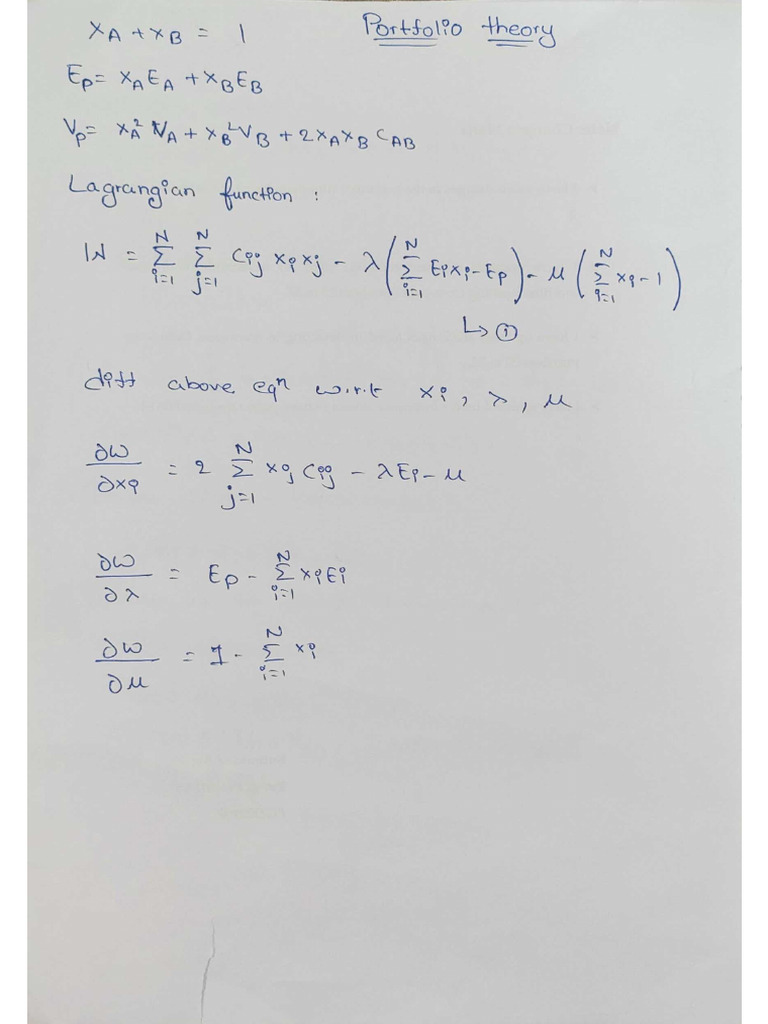 x_A + x_B = 1 Portfolio theory
E_p = x_A E_A + x_B E_B
V_p = x_A^2 V_A + x_B^2 V_B + 2 x_A x_B C_AB
Lagrangian function :
W = Σ_{i=1}^{N} Σ_{j=1}^{N} C_ij x_i x_j - λ ( Σ_{i=1}^{N} E_i x_i - E_p ) - μ ( Σ_{i=1}^{N} x_i - 1 )
↳ ①
diff above eqⁿ w.r.t x_i , λ , μ
∂W/∂x_i = 2 Σ_{j=1}^{N} x_j C_ij - λ E_i - μ
∂W/∂λ = E_p - Σ_{i=1}^{N} x_i E_i
∂W/∂μ = 1 - Σ_{i=1}^{N} x_i